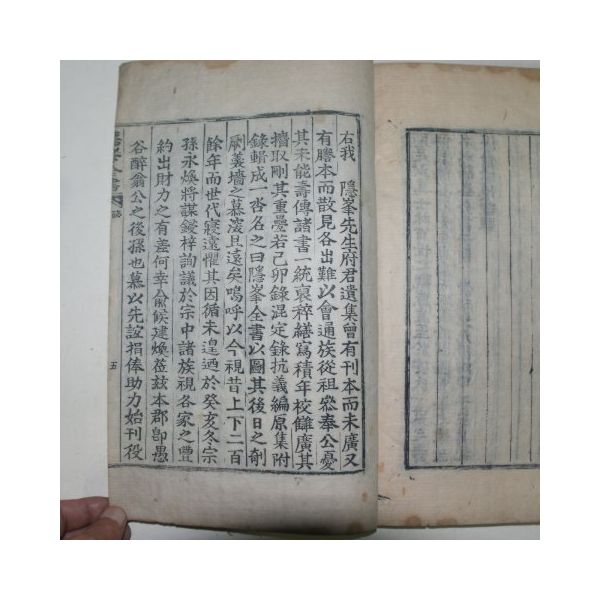 右我 隱峯先生府君遺集曾有刊本而未廣又
有謄本而散見各出難以會通族從祖參奉公憂
其未能壽傳諸書一統裒稡繕寫積年校讎廣其
摭取刪其重疊若己卯錄混定錄抗義編原集附
錄輯成一呇名之曰隱峯全書以圖其後日之剞
劂羹墻之慕滾且遠矣嗚呼以今視昔上下二百
餘年而世代寢遠懼其因循未遑迺於癸亥冬宗
孫永煥將謀鋟梓詢議於宗中諸族視各家之豐
約出財力之有無何幸兪候建煥莅玆本郡卽愚
谷醉翁公之後孫也慕以先誼捐俸助力始刊役
五